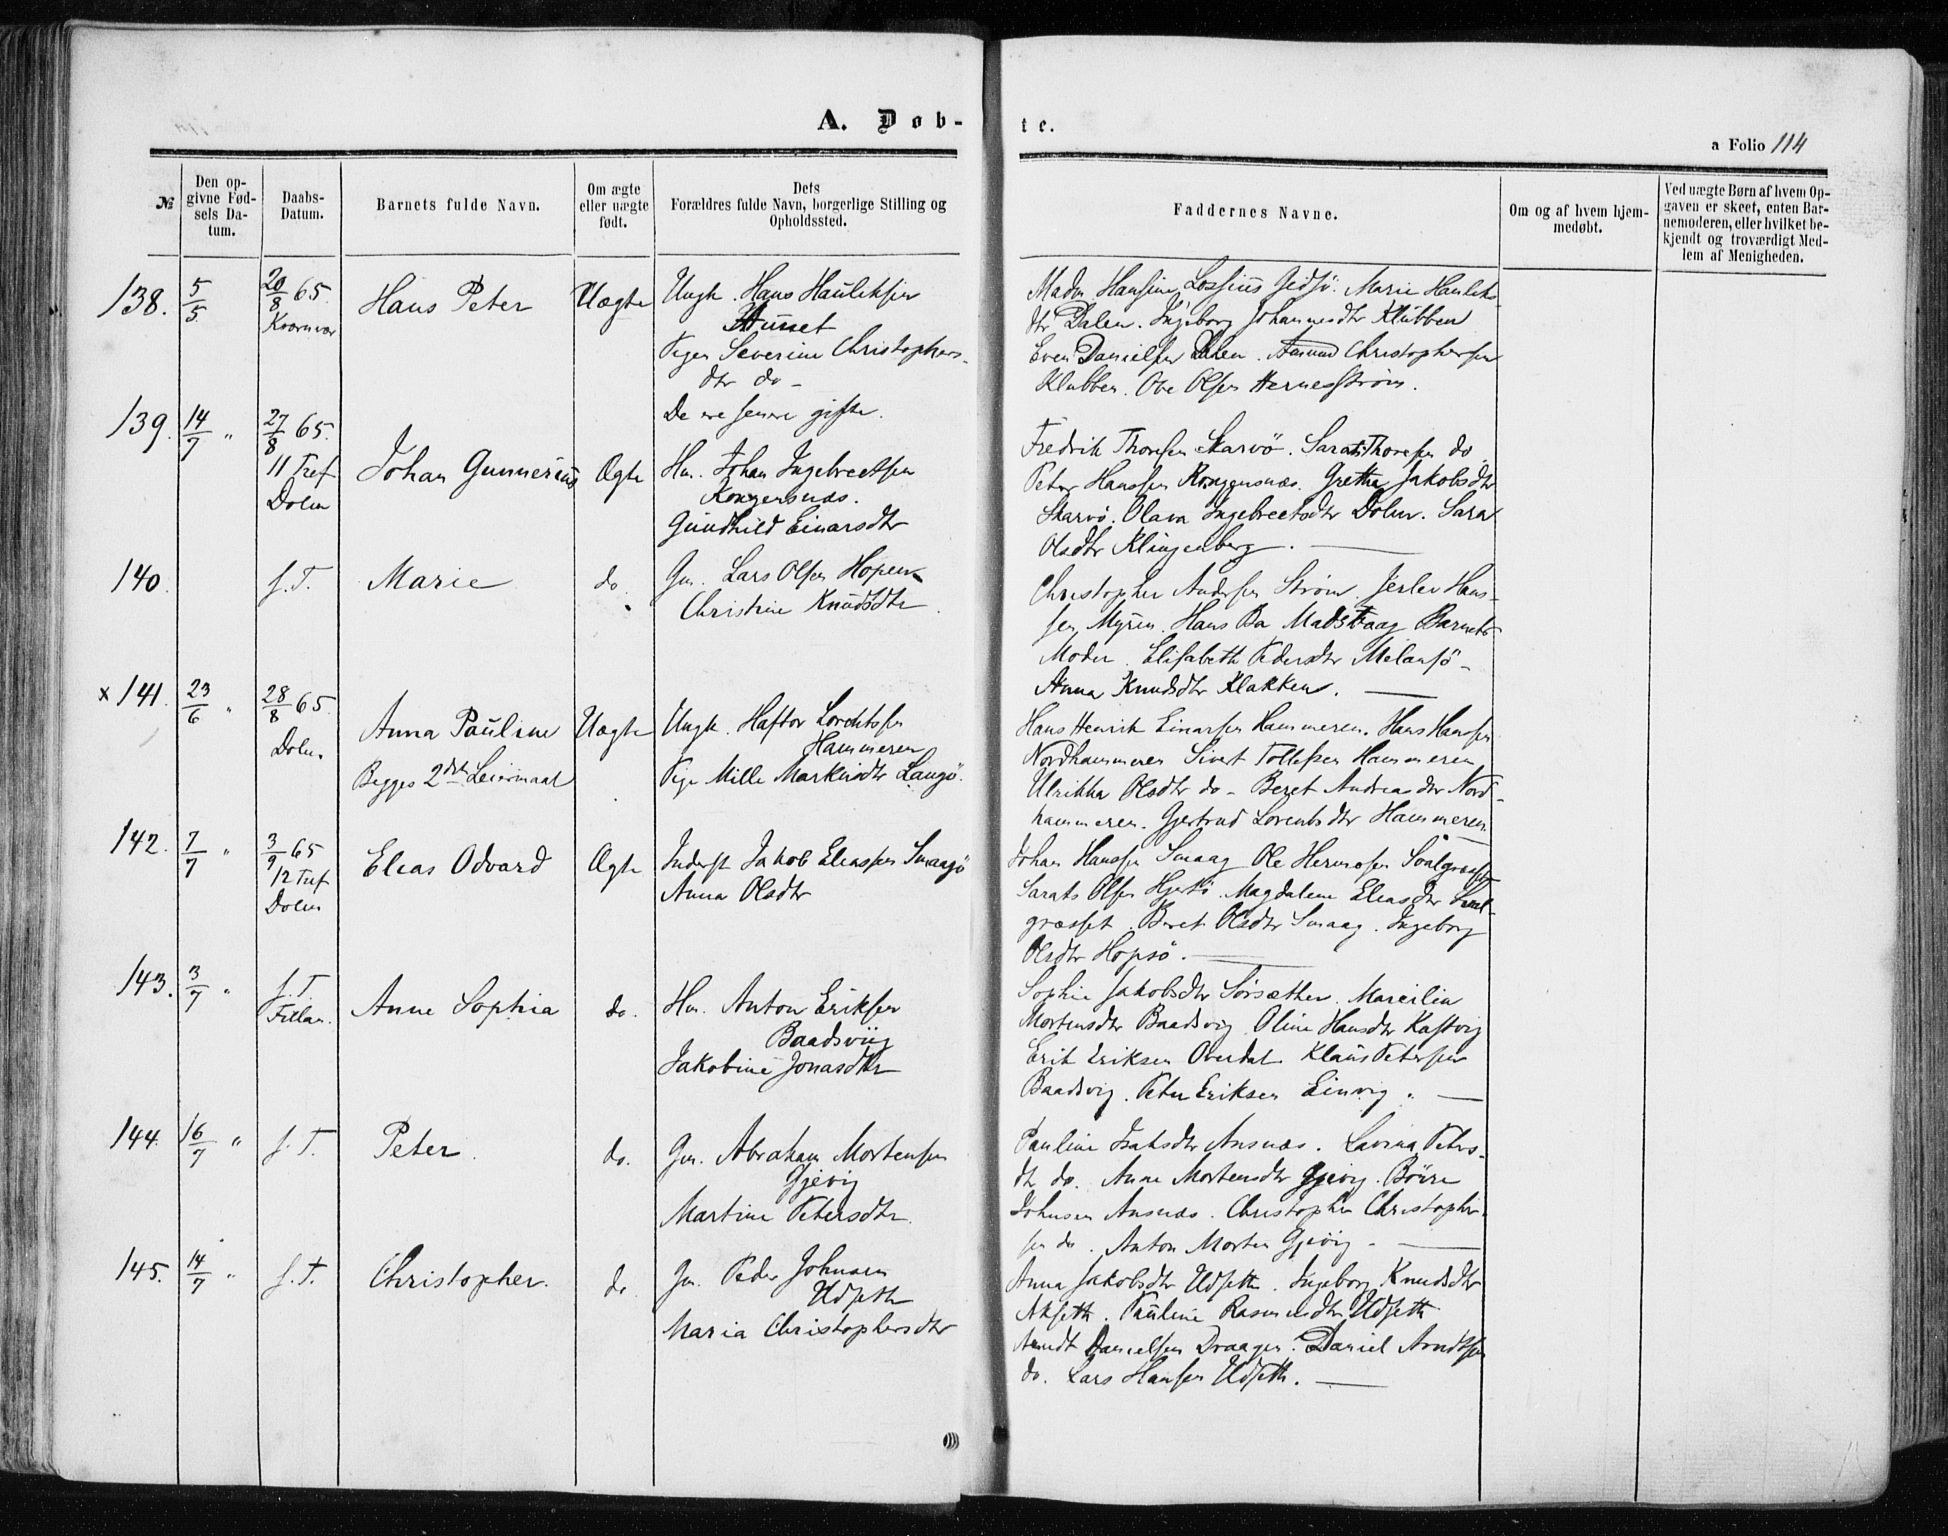 A. Døb-
te.
a Folio 114
№
Den op-
givne Fød-
sels Da-
tum.
Daabs-
Datum.
Barnets fulde Navn.
Om ægte
eller uægte
født.
Dets
Forældres fulde Navn, borgerlige Stilling og
Opholdssted.
Faddernes Navne.
Om og af hvem hjem-
medøbt.
Ved uægte Børn af hvem Op-
gaven er skeet, enten Bar-
nemoderen, eller hvilket be-
kjendt og troværdigt Med-
lem af Menigheden.
138. 5/5 20/8 65. Kvernvær
Hans Peter
Uægte
Ungk. Hans Hauleksen
Husset
Pigen Severine Christophers-
dtr do -
De ere senere gifte.
Madm Hansine Lossius Gidsö. Marie Hauleks-
dtr Dalen. Ingeborg Johannesdtr Klubben
Even Danielsen Dalen. Amund Christophersen
Klubben. Ove Olsen Hernesstrøm.
139. 14/7 " 27/8 65.
11 Tref
Dolm
Johan Gunnerius
Ægte
Hm. Johan Ingebrectsen
Kongensnæs.
Gundhild Einarsdtr
Fredrik Thoresen Skarvö. Sarats Thoresen do
Peter Hanssen Kongensnæs. Gretha Jakobsdtr
Skarvö. Olava Ingebrectsdtr Dolm. Sara
Olsdtr Klingenberg.
140 s.T.
Marie
do.
Gm. Lars Olsen Hopen
Christine Knudsdtr
Christopher Andersen Strøm. Jerlev Hans-
sen Myren. Hans Ba Madstaag Barnets
Moder. Elisabeth Pedersdtr Melansö -
Anna Knudsdtr Klakken.
x 141. 23/6 " 28/8 65.
Dolm.
Anna Pauline
Begges 2det Leiermaal
Uægte
Ungk. Haftor Lorentssen
Hammeren
Pige Mille Markusdtr Langö.
Hans Henrik Einarsen Hammeren. Hans Hansen
Nordhammeren Sivert Tollefsen Hammeren
Ulrikka Olsdtr do - Beret Andreasdtr Nord-
hammeren. Gjertrud Lorentsdtr Hammeren.
142. 7/7 " 3/9 65
12 Tref
Dolm
Eleas Odvard
Ægte
Inderst Jakob Eleassen Smaagö
Anna Olsdtr
Johan Hanssen Smaag Ole Hermosen Svalgræsset
Sarats Olsen Hjertö. Magdalene Eleasdtr Sval-
græsset. Beret Olsdtr Smaag. Ingeborg
Olsdtr Hopsö.
143. 3/7 " s.T
Fillan.
Anne Sophia
do.
Hm. Anton Eriksen
Baadsviig
Jakobine Jonasdtr
Sophie Jakobsdtr Sörsæther. Marcilia
Mortensdtr Baadsvig Oline Hansdtr Kastvig
Erik Eriksen Overdal Klaus Petersen
Baadsvig. Peter Eriksen Linvig.
144. 16/7 " s.T.
Peter.
do.
Gm. Abraham Mortensen
Gjevig
Martine Petersdtr.
Pauline Isaksdtr Ansnæs. Lavina Peters-
dtr do. Anne Mortensdtr Gjevig. Börre
Johnsen Ansnæs. Christopher Christopher-
sen do. Anton Morten Gjevig -
145. 14/7 " s.T.
Christopher.
do
Gm. Peder Johnsen
Udseth
Maria Christophersdtr
Anna Jakobsdtr Udseth. Ingeborg Knudsdtr
Akseth. Pauline Rasmusdtr Udseth
Arndt Danielsen Draagen. Daniel Arndtsen
do. Lars Hansen Udseth.